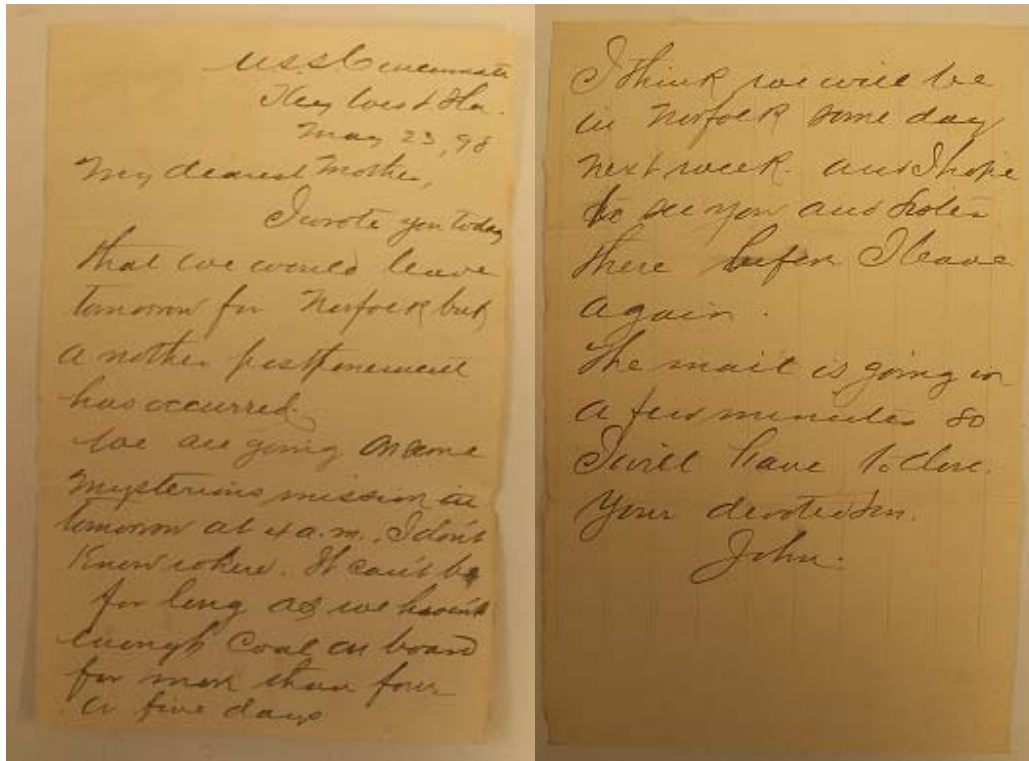 U.S.S. Cincinnati
Key West Fla.
May 23, 98
My dearest Mother,
I wrote you today
that we would leave
tomorrow for Norfolk but
another postponement
has occurred.
We are going on some
mysterious mission
tomorrow at 4 a.m. I don't
know where. It can't be
for long as we haven't
enough coal on board
for more than four
or five days
I think we will be
in Norfolk some day
next week. and I hope
to see you and Sister
there before I leave
again.
The mail is going in
a few minutes so
I will have to close.
Your devoted son.
John.